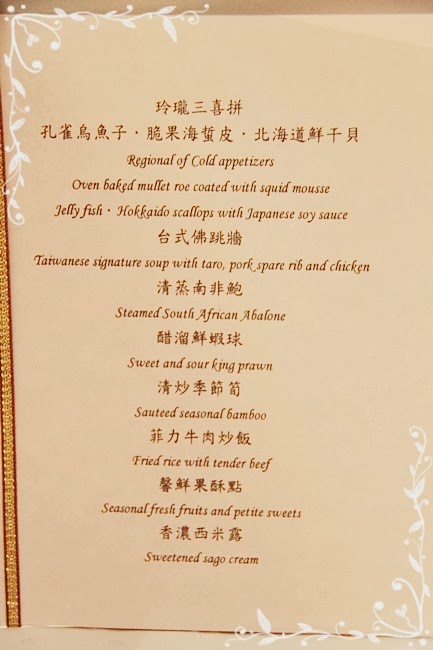 玲瓏三喜拼
孔雀烏魚子·脆果海蜇皮·北海道鮮干貝
Regional of Cold appetizers
Oven baked mullet roe coated with squid mousse
Jelly fish · Hokkaido scallops with Japanese soy sauce
台式佛跳牆
Taiwanese signature soup with taro, pork spare rib and chicken
清蒸南非鮑
Steamed South African Abalone
醋溜鮮蝦球
Sweet and sour king prawn
清炒季節筍
Sauteed seasonal bamboo
菲力牛肉炒飯
Fried rice with tender beef
馨鮮果酥點
Seasonal fresh fruits and petite sweets
香濃西米露
Sweetened sago cream